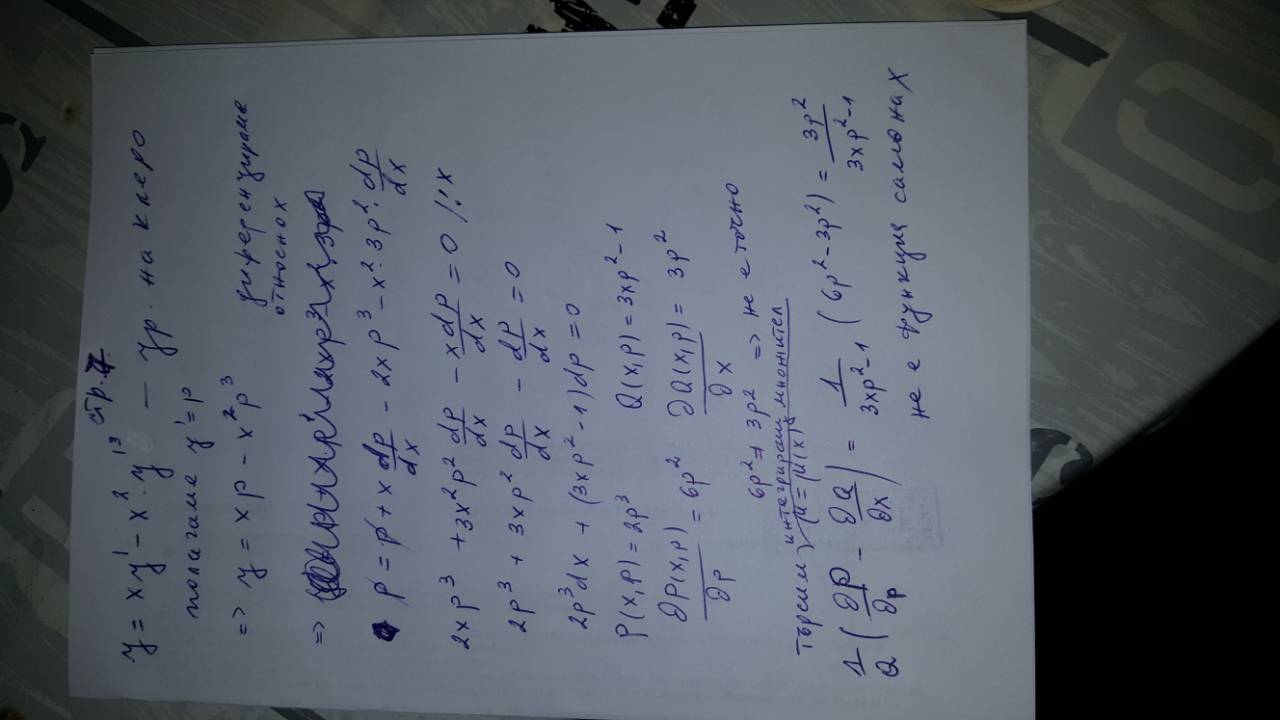 стр. 7
y = xy' - x². y'³ — ур. на клеро
полагаме y' = p
=> y = xp - x²p³ диференцираме
относно x
=>
p = p + x dp/dx - 2xp³ - x². 3p². dp/dx
2xp³ + 3x²p² dp/dx - xdp/dx = 0 /: x
2p³ + 3xp² dp/dx - dp/dx = 0
2p³dx + (3xp² - 1)dp = 0
P(x,p) = 2p³ Q(x,p) = 3xp² - 1
∂P(x,p)/∂p = 6p² ∂Q(x,p)/∂x = 3p²
6p² ≠ 3p² => не е точно
интегриращ множител
Търсим μ = μ(x)
1/Q (∂P/∂p - ∂Q/∂x) = 1/(3xp²-1) (6p² - 3p²) = 3p²/(3xp²-1)
не е функция само на x